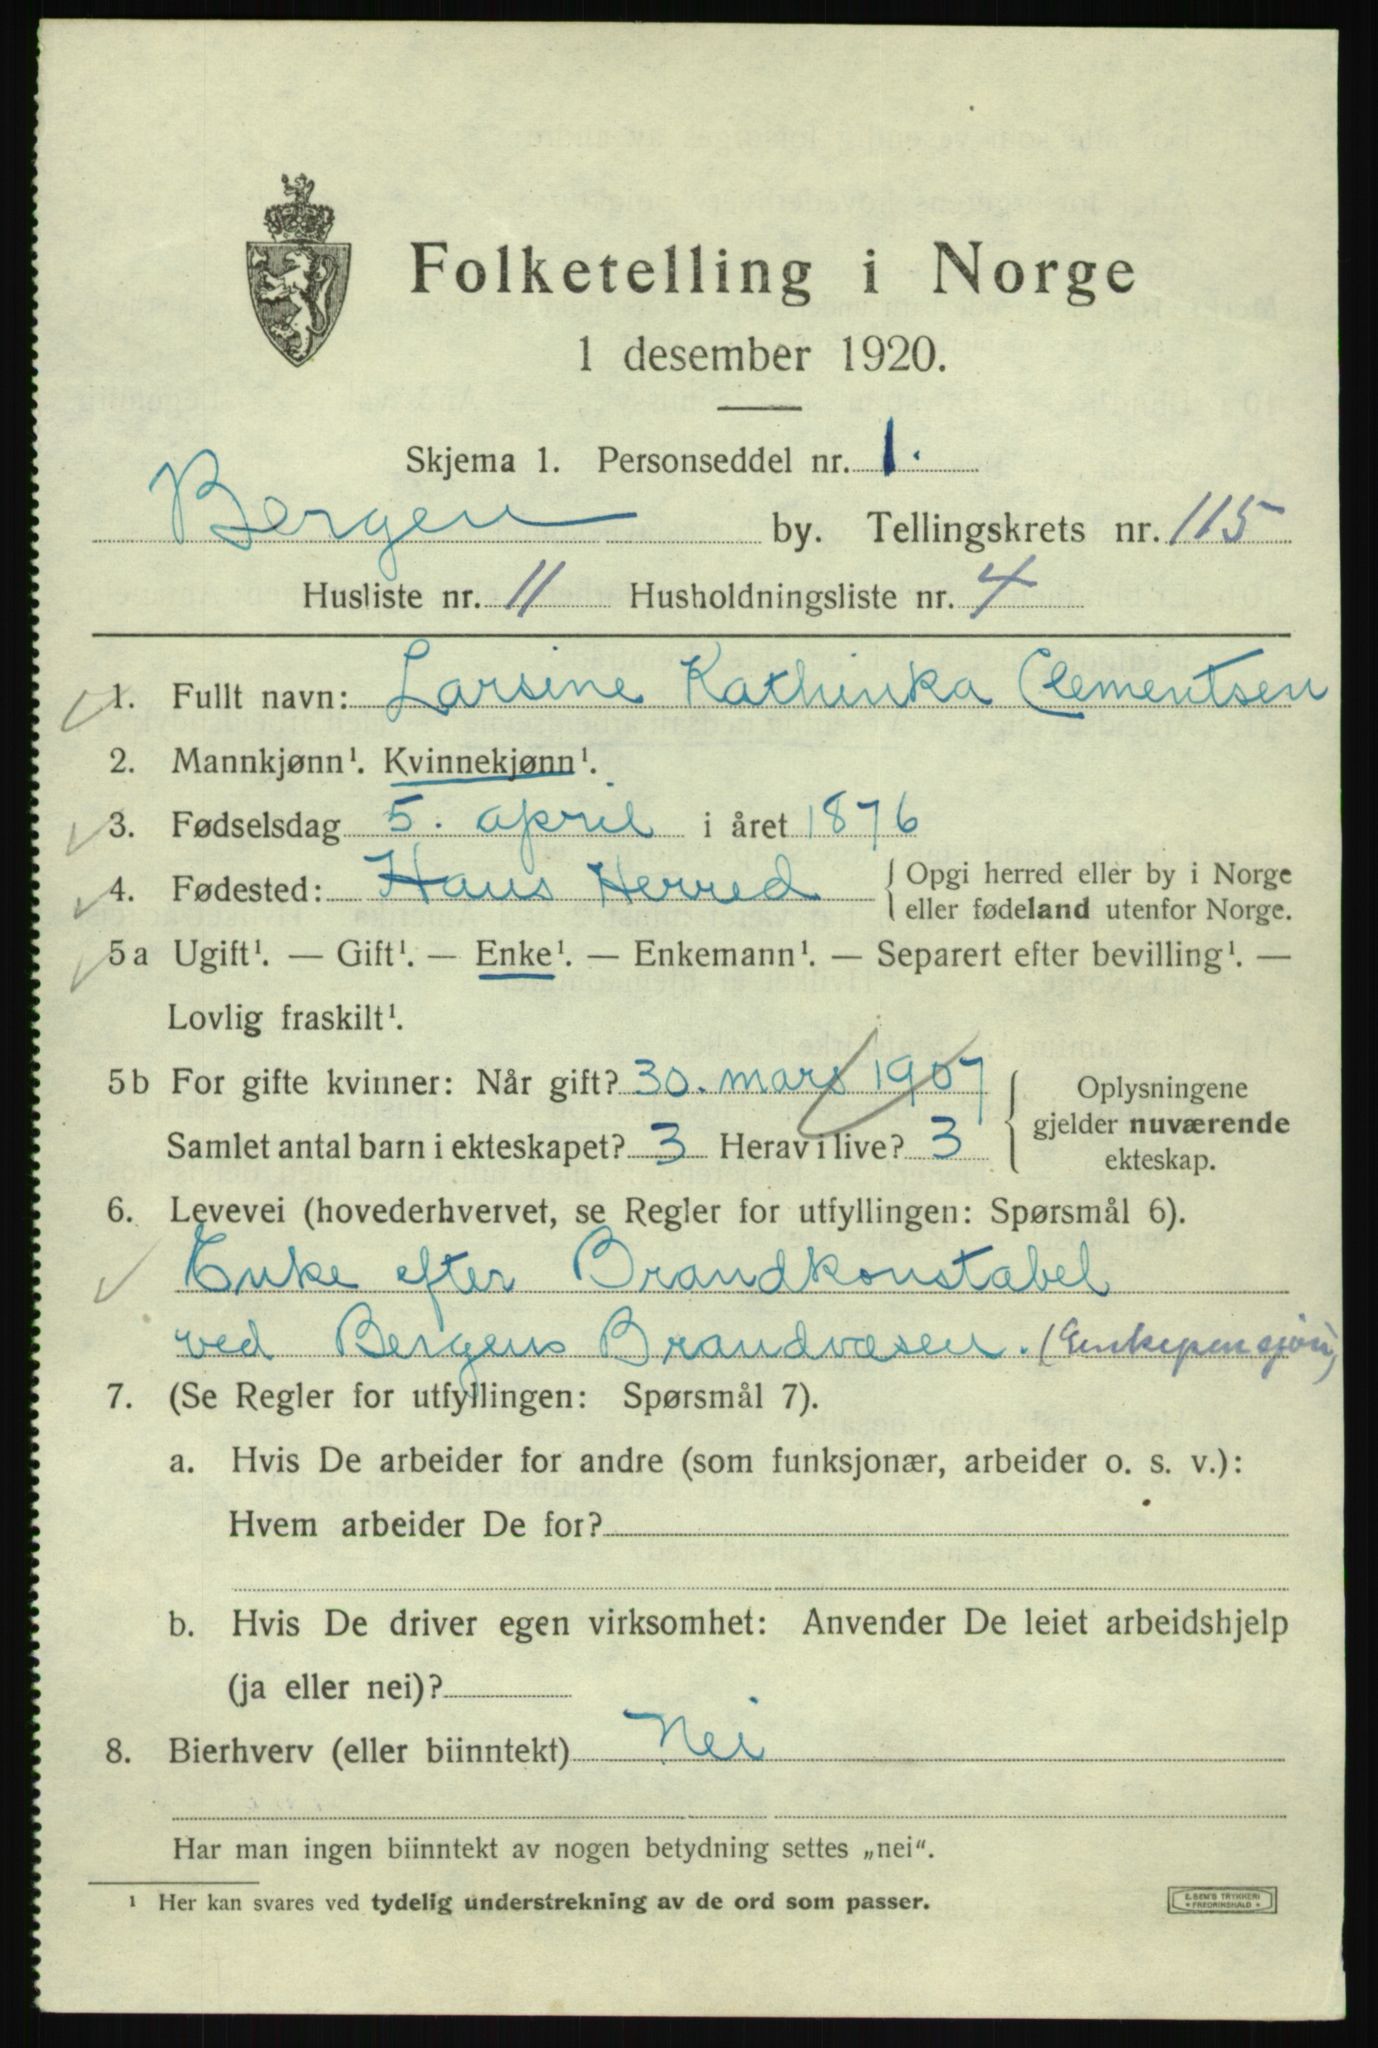 Folketelling i Norge
1 desember 1920.
Skjema 1. Personseddel nr. 1.
Bergen by. Tellingskrets nr. 115
Husliste nr. 11 Husholdningsliste nr. 4
1. Fullt navn: Larsine Kathinka Clementsen
2. Mannkjønn¹. Kvinnekjønn¹.
3. Fødselsdag 5. april i året 1876
4. Fødested: Haus Herred { Opgi herred eller by i Norge
eller fødeland utenfor Norge.
5a Ugift¹. — Gift¹. — Enke¹. — Enkemann¹. — Separert efter bevilling¹. —
Lovlig fraskilt¹.
5b For gifte kvinner: Når gift? 30. mars 1907
Samlet antal barn i ekteskapet? 3 Herav i live? 3
{ Oplysningene
gjelder nuværende
ekteskap.
6. Levevei (hovederhvervet, se Regler for utfyllingen: Spørsmål 6).
Enke efter Brandkonstabel
ved Bergens Brandvæsen. (Enkepensjon)
7. (Se Regler for utfyllingen: Spørsmål 7).
a. Hvis De arbeider for andre (som funksjonær, arbeider o. s. v.):
Hvem arbeider De for?
b. Hvis De driver egen virksomhet: Anvender De leiet arbeidshjelp
(ja eller nei)?
8. Bierhverv (eller biinntekt) Nei
Har man ingen biinntekt av nogen betydning settes „nei“.
¹ Her kan svares ved tydelig understrekning av de ord som passer.
E. SEM'S TRYKKERI
* FREDRIKSHALD *